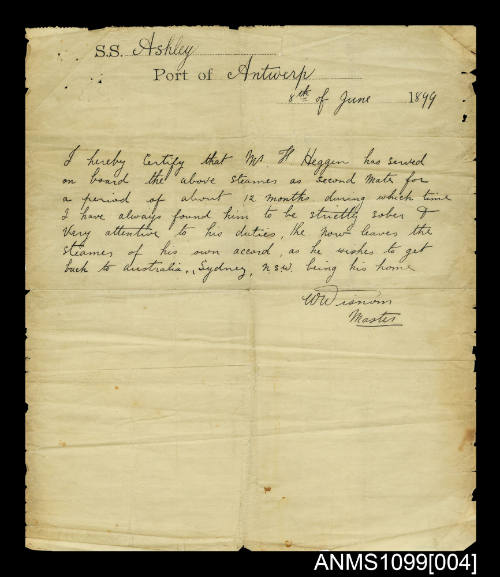 S.S. Ashley
Port of Antwerp
8th of June 1899
I hereby Certify that Mr H Heggen has served
on board the above steamer as Second Mate for
a period of about 12 months during which time
I have always found him to be strictly sober &
very attentive to his duties, he now leaves the
steamer of his own accord, as he wishes to get
back to Australia, Sydney, N.S.W. being his home
Master
ANMS1099[004]